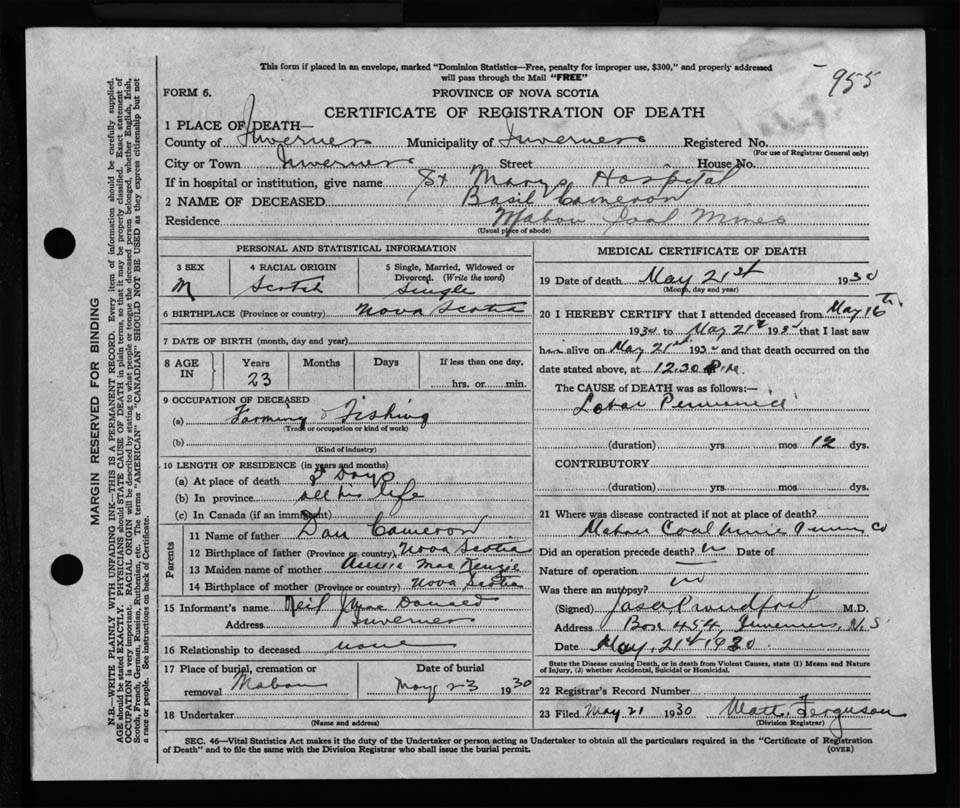 This form if placed in an envelope, marked "Dominion Statistics—Free, penalty for improper use, $300," and properly addressed
will pass through the Mail "FREE"
955
FORM 6.
PROVINCE OF NOVA SCOTIA
CERTIFICATE OF REGISTRATION OF DEATH
1 PLACE OF DEATH—
County of Inverness Municipality of Inverness Registered No.
(For use of Registrar General only)
City or Town Inverness Street House No.
If in hospital or institution, give name St Marys Hospital
2 NAME OF DECEASED Basil Cameron
Residence Mabou Coal Mines
(Usual place of abode)
MARGIN RESERVED FOR BINDING
N.B.—WRITE PLAINLY WITH UNFADING INK—THIS IS A PERMANENT RECORD. Every item of information should be carefully supplied.
AGE should be stated EXACTLY. PHYSICIANS should STATE CAUSE OF DEATH in plain terms, so that it may be properly classified. Exact statement of
OCCUPATION is very important. RACIAL ORIGIN will be described by stating to what people or tongue the deceased person belonged, whether English, Irish,
Scotch, French, German, Russian, Ruthenian, etc. The terms "AMERICAN" or "CANADIAN" SHOULD NOT BE USED as they express citizenship but not
a race or people. See instructions on back of Certificate.
PERSONAL AND STATISTICAL INFORMATION
3 SEX 4 RACIAL ORIGIN 5 Single, Married, Widowed or
Divorced. (Write the word)
M Scotch Single
6 BIRTHPLACE (Province or country) Nova Scotia
7 DATE OF BIRTH (month, day and year)
8 AGE IN Years Months Days If less than one day,
23 hrs. or min.
9 OCCUPATION OF DECEASED
(a) Farming & Fishing
(Trade or occupation or kind of work)
(b)
(Kind of industry)
10 LENGTH OF RESIDENCE (in years and months)
(a) At place of death Days
(b) In province all his life
(c) In Canada (if an immigrant)
Parents
11 Name of father Dan Cameron
12 Birthplace of father (Province or country) Nova Scotia
13 Maiden name of mother Mac Kenzie
14 Birthplace of mother (Province or country) Nova Scotia
15 Informant's name Neil J Mac Donald
Address Inverness
16 Relationship to deceased none
17 Place of burial, cremation or Date of burial
removal Mabou May 23 1930
18 Undertaker
(Name and address)
MEDICAL CERTIFICATE OF DEATH
19 Date of death May 21st 1930
(Month, day and year)
20 I HEREBY CERTIFY that I attended deceased from May 16th
1930 to May 21st 1930 that I last saw
him alive on May 21st 1930 and that death occurred on the
date stated above, at 12.30 P.M.
The CAUSE of DEATH was as follows:—
Lobar
(duration) yrs. mos. 12 dys.
CONTRIBUTORY
(duration) yrs. mos. dys.
21 Where was disease contracted if not at place of death?
Mabou Coal Mines Co
Did an operation precede death? no Date of
Nature of operation
Was there an autopsy? no
(Signed) Proudfoot M.D.
Address Box 454 Inverness, N.S.
Date May, 21st 1930.
State the Disease causing Death, or in death from Violent Causes, state (1) Means and Nature
of Injury, (2) whether Accidental, Suicidal or Homicidal.
22 Registrar's Record Number
23 Filed May 21 1930 Matt. Ferguson
(Division Registrar)
SEC. 46—Vital Statistics Act makes it the duty of the Undertaker or person acting as Undertaker to obtain all the particulars required in the "Certificate of Registration
of Death" and to file the same with the Division Registrar who shall issue the burial permit.
(OVER)